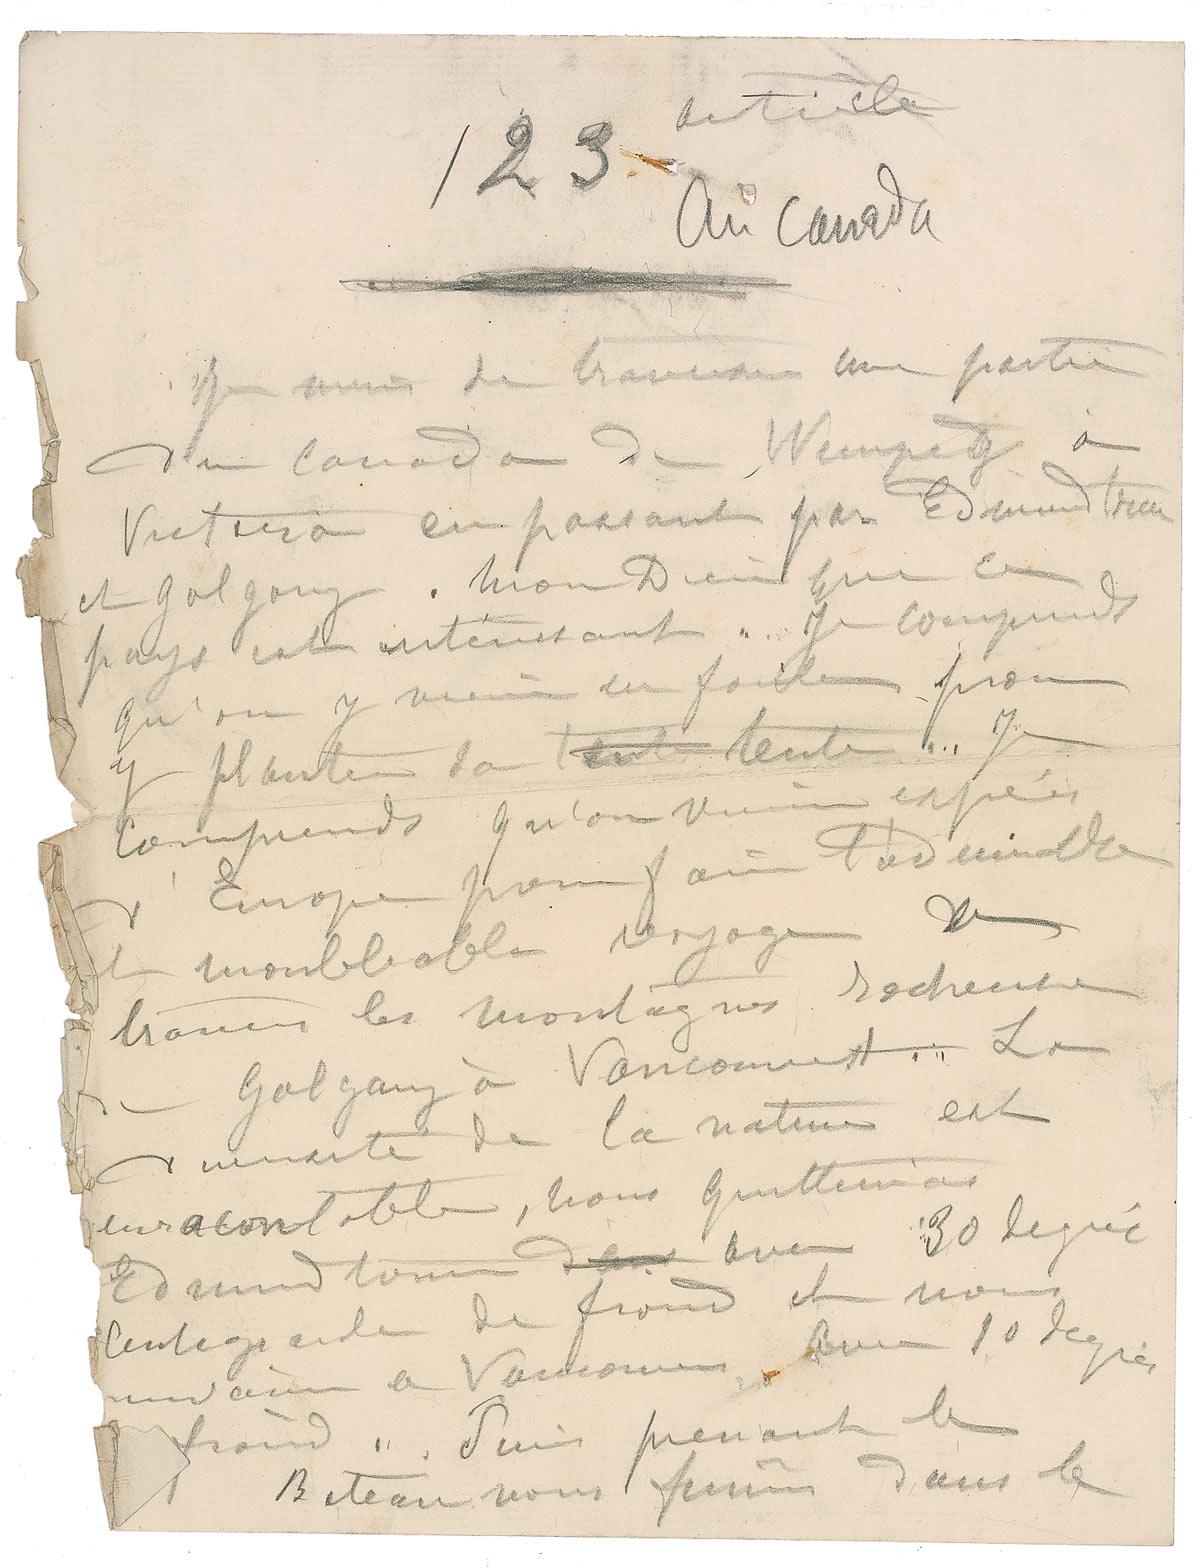 article
123
Au Canada
Je viens de traverser une partie
du Canada de Winnipeg à
Victoria en passant par Edmundtown
et Galgary. Mon Dieu que ce
pays est intéressant .. Je comprends
qu'on y vienne en foule pour
y planter sa tente tente ... Je
comprends qu'on vienne exprès
d'Europe pour faire l'admirable
et inoubliable voyage de
travers les montagnes rocheuses
Galgary à Vancouver ... La
diversité de la nature est
inracontable, nous quittions
Edmundtown dans avec 30 degrés
centegrade de froid et nous
à Vancouver avec 10 degrés
froid .. Puis prenant le
Bateau nous fumes dans le